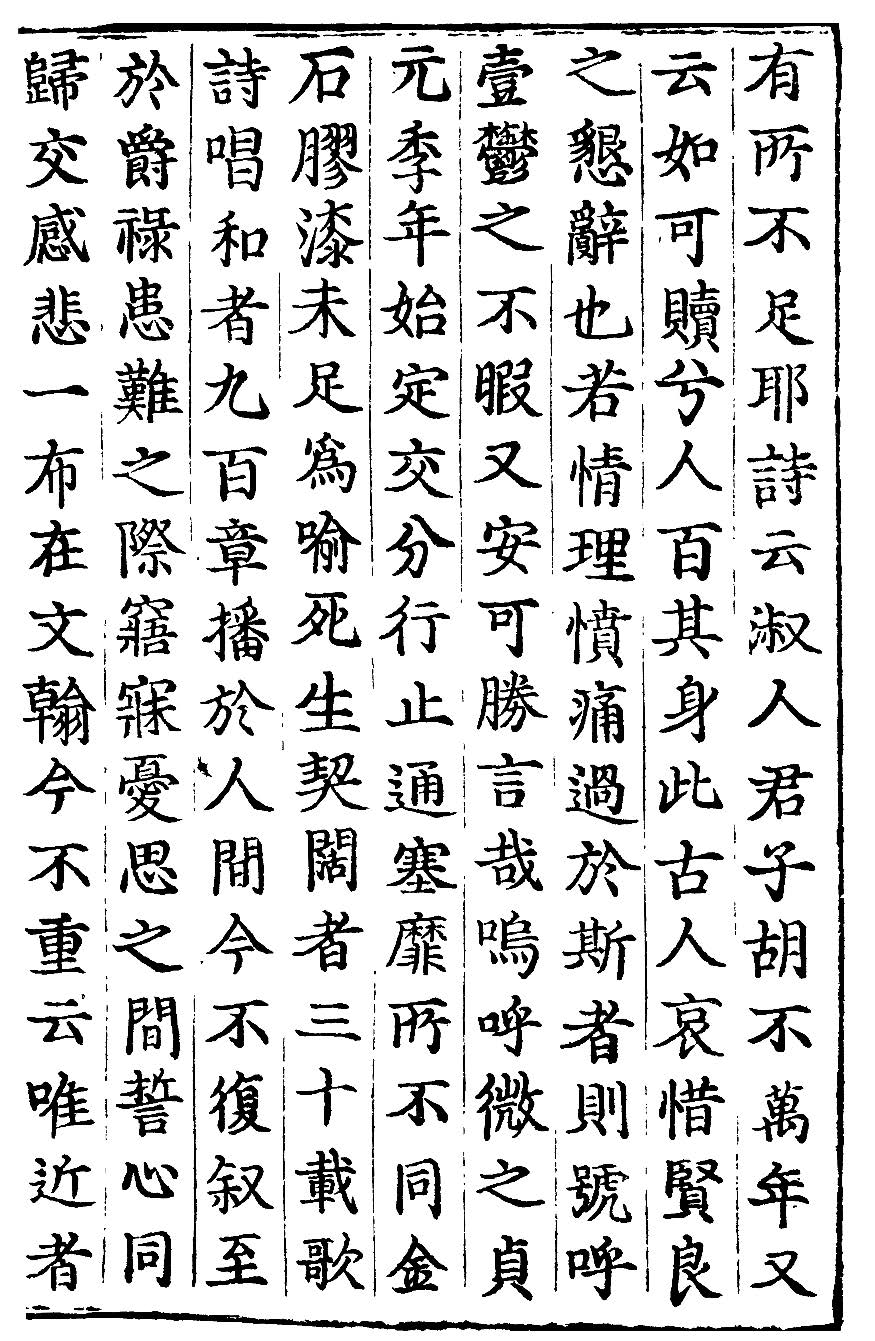 有所不足耶詩云淑人君子胡不萬年又
云如可贖兮人百其身此古人哀惜賢良
之懇辭也若情理憤痛過於斯者則號呼
壹鬱之不暇又安可勝言哉嗚呼微之貞
元季年始定交分行止通塞靡所不同金
石膠漆未足爲喻死生契闊者三十載歌
詩唱和者九百章播於人間今不復叙至
於爵祿患難之際寤寐憂思之間誓心同
歸交感悲一布在文翰今不重云唯近者